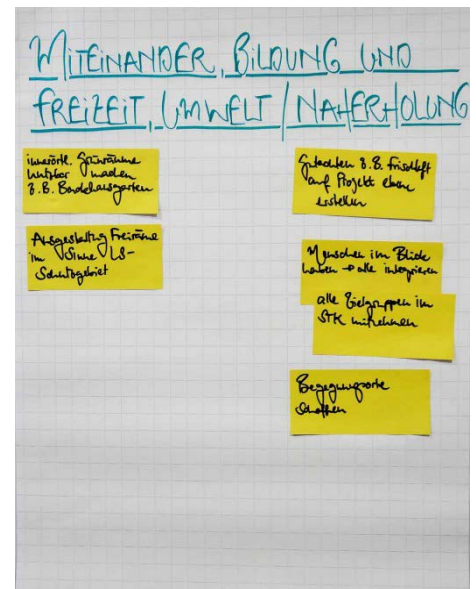 MITEINANDER, BILDUNG UND
FREIZEIT, UMWELT / NAHERHOLUNG
innerörtl. Grünräume
nutzbar machen
z.B.
Ausgestaltung Freiräume
im Sinne LS-
Schutzgebiet
Gutachten z.B. Frischluft
auf Projektebene
erstellen
Menschen im Blick
haben → alle integrieren
alle Zielgruppen im
STK mitnehmen
Begegnungsorte
schaffen